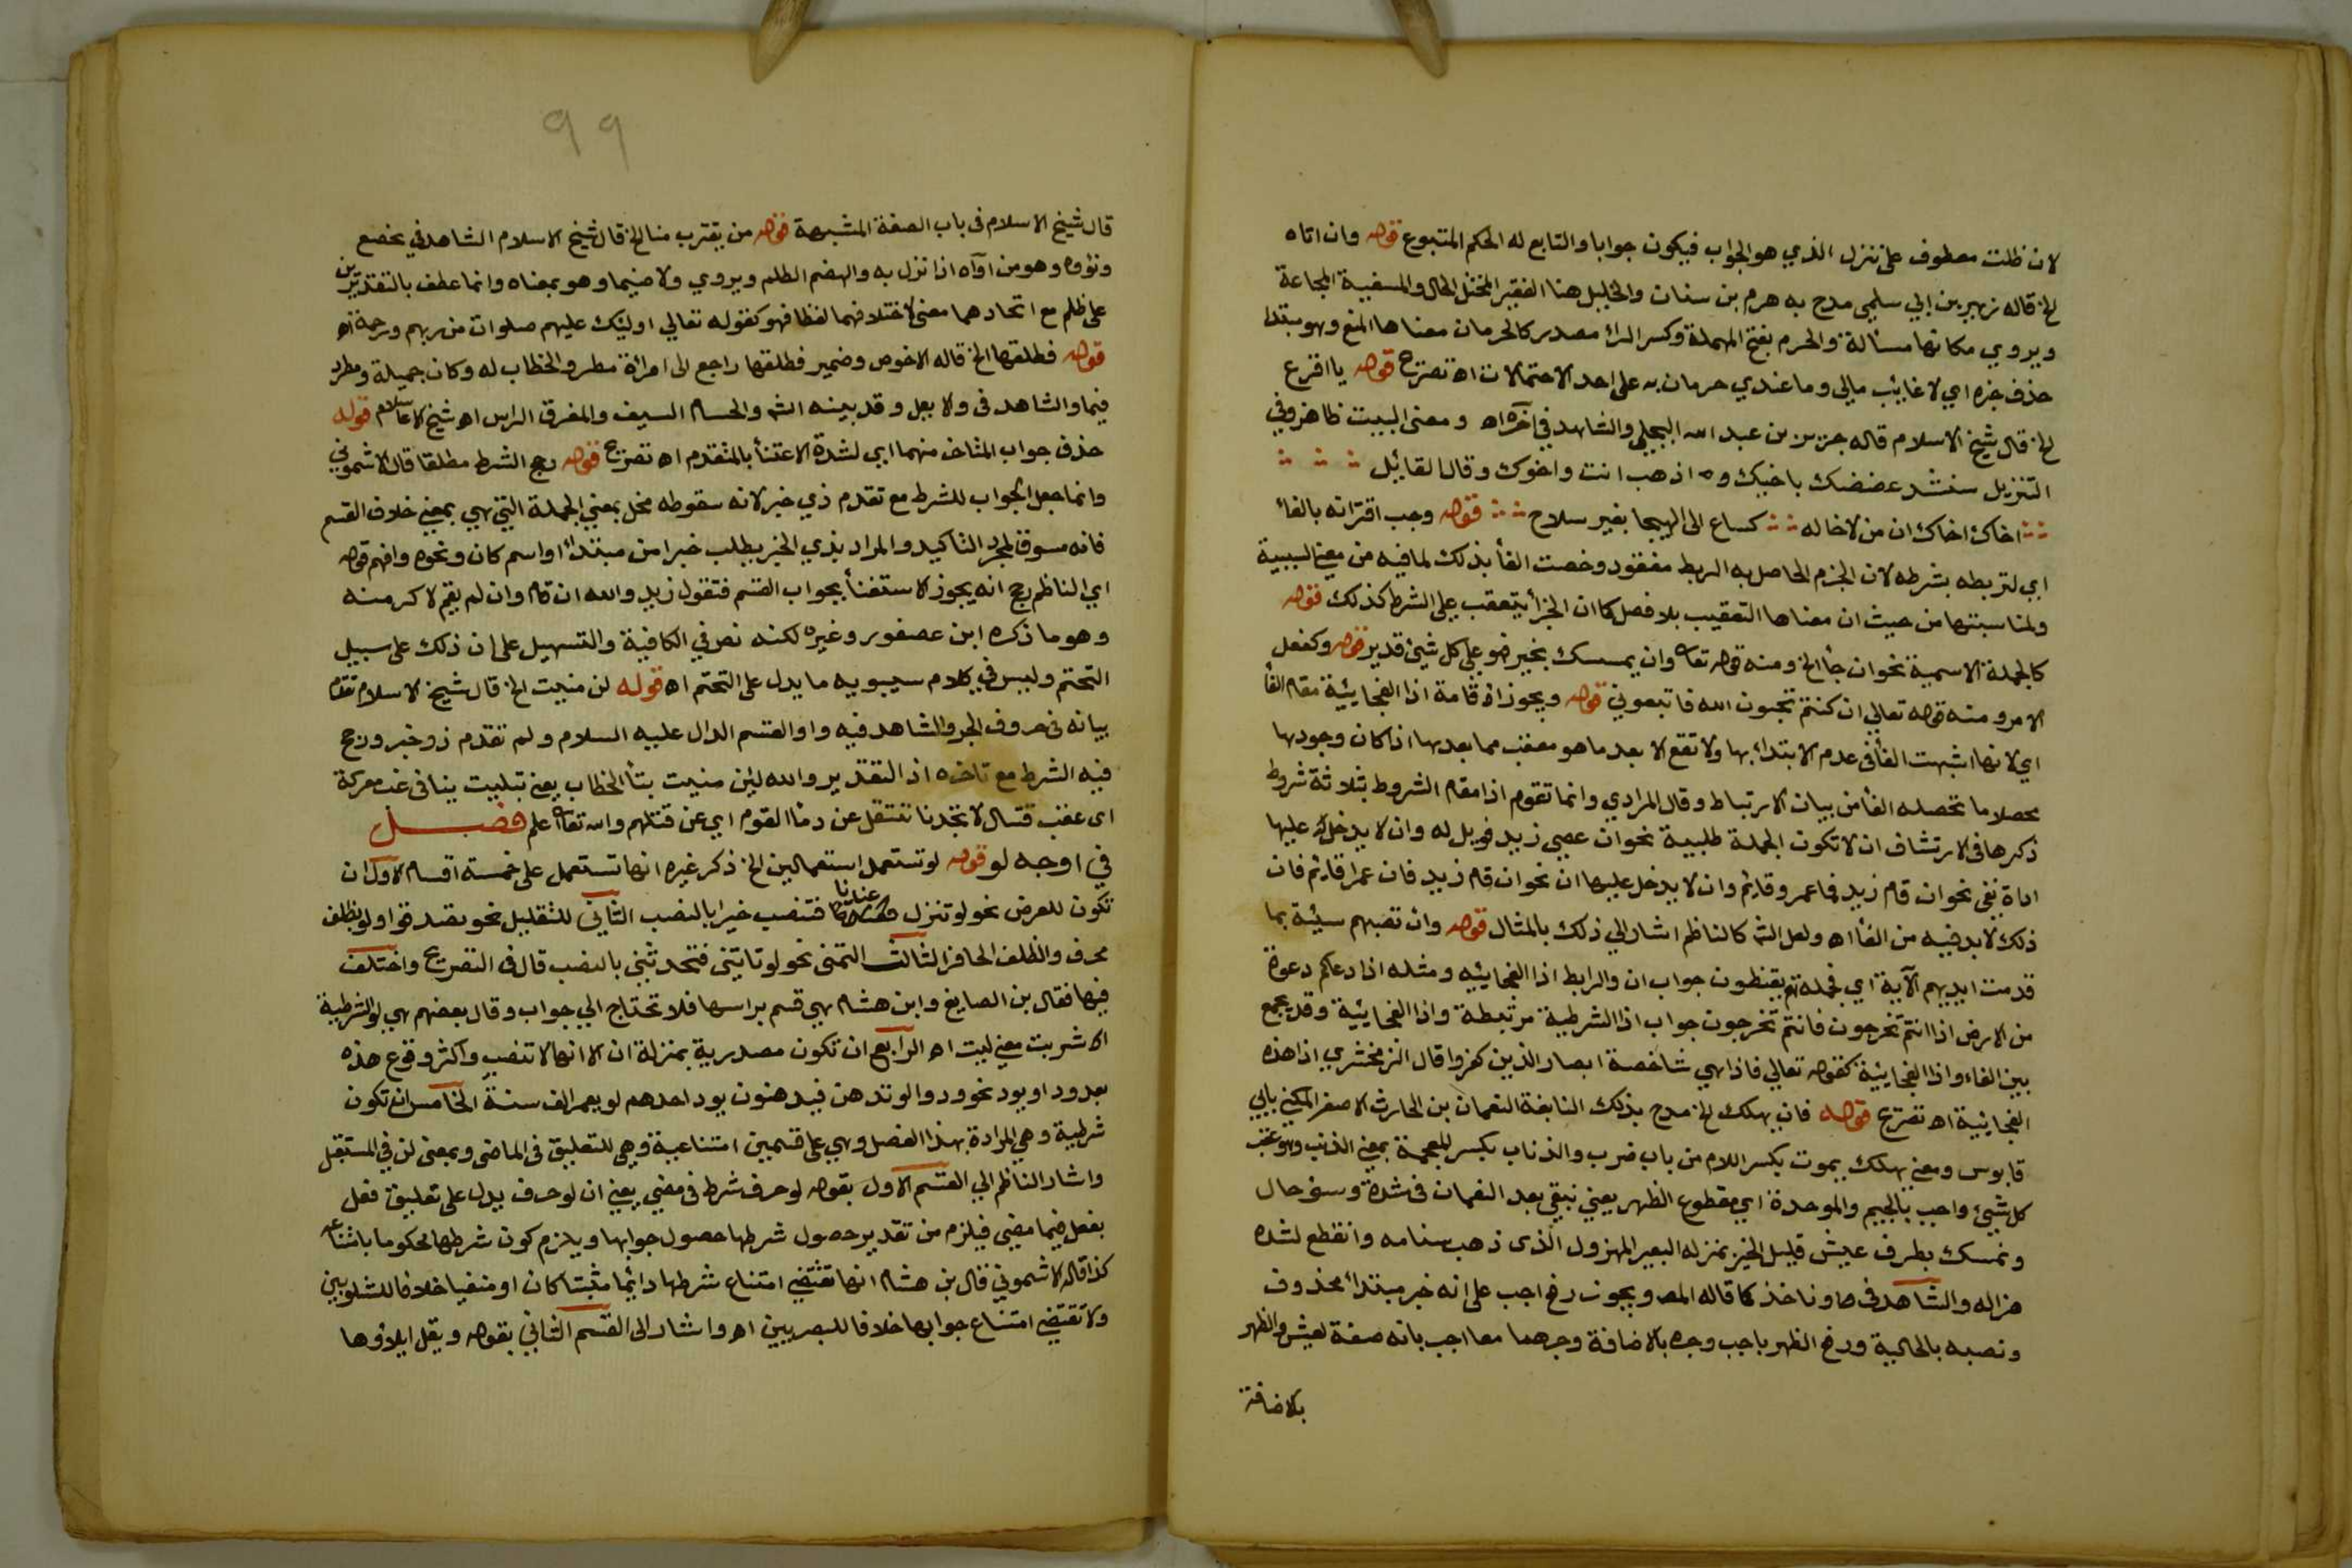 لان ظلت معطوف على تنزل الذي هو الجواب فيكون جوابا والتابع له الحكم المتبوع قوله وان اتاه
الخ قاله زهير بن ابي سلمي مدح به هرم بن سنان والخليل هنا الفقير المختل الحال والمسغبة المجاعة
ويروي مكانها مسألة والحرم بفتح المهملة وكسر الرائ مصدر كالحرمان معناها المنع وهو مبتدا
حذف خبره اي لا غايب مالي وما عندي حرمان به على احد الاحتمالات اه تصريح قوله يا اقرع
الخ قال شيخ الاسلام قاله جرير بن عبد الله البجلي والشاهد في آخره اه ومعنى البيت ظاهر وفي
التنزيل سنشد عضضك باخيك و اذهب انت واخوك وقال القايل
اخاك اخاك ان من لاخا له كساع الى الهيجا بغير سلاح قوله وجب اقترانه بالفائ
اي لتربطه بشرطه لان الجزم الحاصل به الربط مفقود وخصت الفأ بذلك لما فيه من معني السببية
ولمناسبتها من حيث ان معناها التعقيب بلا فصل كما ان الجزأ يتعقب على الشرط كذلك قوله
كالجملة الاسمية نحو ان جأ الخ ومنه قوله تعا وان يمسسك بخير فهو على كل شيئ قدير قوله وكفعل
الامر ومنه قوله تعالي ان كنتم تحبون الله فاتبعوني قوله ويجوز اقامة اذا الفجاييئة مقام الفأ
اي لانها اشبهت الفأ في عدم الابتدائ بها ولا تقع الا بعد ما هو معقب مما بعدها اذا كان وجودها
محصلا ما تحصله الفأ من بيان الارتباط وقال المرادي وانما تقوم اذا مقام الشروط بثلاثة شروط
ذكرها في الارتشاف ان لا تكون الجملة طلبية نحو ان عصي زيد فويل له وان لا يدخل عليها
اداة نفي نحو ان قام زيد فما عمرو قايم وان لا يدخل عليها ان نحو ان قام زيد فان عمرا قايم فان
ذلك لا بد فيه من الفأ اه ولعل الش كالناظم اشار الي ذلك بالمثال قوله وان تصبهم سيئة بما
قدمت ايديهم الآية اي فجملة هم يقنطون جواب ان والرابط اذا الفجايئيه ومثله اذا دعاكم دعوة
من الارض اذا انتم تخرجون فانتم تخرجون جواب اذا الشرطية مرتبطة واذا الفجايئية وقد يجمع
بين الفاء واذا الفجايئية كقوله تعالي فاذا هي شاخصة ابصار الذين كفروا قال الزمخشري اذا هذه
الفجايئية اه تصريح قوله فان يهلك الخ مدح بذلك النابغة النعمان بن الحارث الاصغر المكني بابي
قابوس ومعني يهلك يموت بكسر اللام من باب ضرب والذناب بكسر المعجمة بمعني الذنب وهو عقب
كل شيئ واجب بالجيم والموحدة اي مقطوع الظهر يعني نبقي بعد النعمان في شدة وسوء حال
ونمسك بطرف عيش قليل الخير بمنزله البعير المهزول الذى ذهب سنامه وانقطع لشدة
هزاله والشاهد في ونأخذ كما قاله المص ويجوز رفع اجب على انه خبر مبتدأ محذوف
ونصبه بالحالية ورفع الظهر باجب وجره بالاضافة وجرهما معا اجب بانه صفة لعيش والظهر
بالاضافة
٩٩
قال شيخ الاسلام في باب الصفة المشبهة قوله من يقترب منا الخ قال شيخ الاسلام الشاهد في يخضع
ونؤوه وهو من آواه اذا نزل به والهضم الظلم ويروي ولا ضيما وهو بمعناه وانما عطف بالتقديرين
على ظلم مع اتحادهما معنى لاختلافهما لفظا فهو كقوله تعالي اوليئك عليهم صلوات من ربهم ورحمة اه
قوله فطلقها الخ قاله الاخوص وضمير فطلقها راجع الى امرأة مطر والخطاب له وكان جميلة ومطرد
فيما والشاهد في ولا يعل وقد بينه الش والحسام السيف والمفرق الراس اه شيخ الاسلام قوله
حذف جواب المتاخر منهما اي لشدة الاعتنأ بالمتقدم اه تصريح قوله رجح الشرط مطلقا قال الاشموني
وانما جعل الجواب للشرط مع تقدم ذي خبر لانه سقوطه مخل بمعني الجملة التي هي بمعني خلاف القسم
فانه مسوق لمجرد التاكيد والمراد بذي الخبر يطلب خبرا من مبتدأ او اسم كان ونحوه وافهم قوله
اي الناظم رجح انه يجوز الاستغنأ بجواب القسم فتقول زيد والله ان قام وان لم يقم لاكرمنه
وهو ما ذكره ابن عصفور وغيره لكنه نص في الكافية والتسهيل على ان ذلك على سبيل
التحتم وليس في كلام سيبويه ما يدل على التحتم اه قوله لن منيت الخ قال شيخ الاسلام تقدم
بيانه في حروف الجر والشاهد فيه واو القسم الدال عليه السلام ولم تقدم ذو خبر ورجح
فيه الشرط مع تاخره اذ التقدير والله ليئن منيت بتأ الخطاب يعني تبليت بنا في غب معركة
اى عقب قتال لا تجدنا ننتقل عن دمأ القوم اي عن قتلهم والله تعا اعلم فصـــل
في اوجه لو قوله لو تستعمل استعمالين الخ ذكر غيره انها تستعمل على خمسة اقسام الاول ان
تكون للعرض نحو لو تنزل عندنا فتصب خيرا بالنصب الثاني للتقليل نحو تصدقوا ولو بظلف
محرف والظلف الحافر الثالث التمنى نحو لو تاتيني فتحدثني بالنصب قال في التصريح واختلف
فيها فقال بن الصايغ وابن هشام هي قسم براسها فلا تحتاج الي جواب وقال بعضهم هي لو الشرطية
اشربت معني ليت اه الرابع ان تكون مصدرية بمنزلة ان الا انها لا تنصب واكثر وقوع هذه
بعد ود او يود نحو ودوا لو تدهن فيدهنون يود احدهم لو يعمر الف سنة الخامس ان تكون
شرطية وهي المرادة بهذا الفصل وهي على قسمين امتناعية وهي للتعليق في الماضى وبمعنى ان في المستقبل
واشار الناظم الي القسم الاول بقوله لو حرف شرط في مضي يعني ان لو حرف يدل على تعليق فعل
بفعل فيما مضي فيلزم من تقدير حصول شرطها حصول جوابها ويلزم كون شرطها محكوما بامتناعه
كذا قاله الاشموني قال بن هشام انها تقتضي امتناع شرطها دايما مثبتا كان او منفيا خلافا للشلوبين
ولا تقتضي امتناع جوابها خلافا للبصريين اه واشار الى القسم الثاني بقوله ويقل ايلاؤها